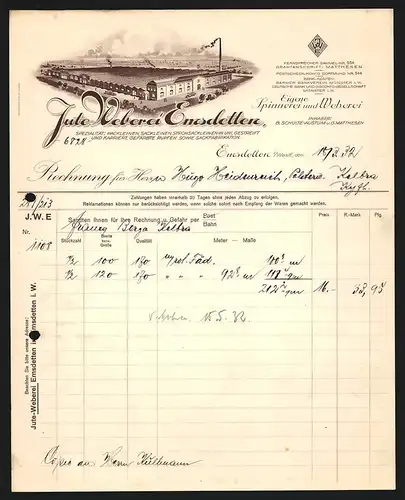 FERNSPRECHER: SAMMEL-NR. 554
DRAHTANSCHRIFT: MATTHESEN
POSTSCHECK-KONTO DORTMUND NR. 544
BANK-KONTEN:
BARMER BANKVEREIN MÜNSTER i.W.
DEUTSCHE BANK UND DISCONTO-GESELLSCHAFT
MÜNSTER i.W.
Eigene
Spinnerei und Weberei
INHABER:
B. SCHULTE-AUSTUM u. G. MATTHESEN
Jute-Weberei Emsdetten,
SPEZIALITÄT: HACKLEINEN, SACKLEINEN, SPROSACKLEINEN UNI, GESTREIFT
UND KARRIERT, GEFÄRBTE RUPFEN SOWIE SACKFABRIKATION.
6728
Emsdetten i. Westf., den 19/3. 32
Rechnung für Herrn Hugo Heidenreich, Polsterw. Kelbra
Kyffh.
Zahlungen haben innerhalb 30 Tagen ohne jeden Abzug zu erfolgen.
Reklamationen können nur berücksichtigt werden, wenn solche sofort nach Empfang der Waren gemacht werden.
J. W. E
Nr.
1108
Sandten Ihnen für Ihre Rechnung u. Gefahr per Post
Bahn
Franco Berga Kelbra
Stückzahl Breite bezw. Größe Qualität Meter - Maße Preis R.-Mark Pfg.
1/2 100 180 m/rot. Fäd. 100 m
1/2 120 180 " " " 118 qm
212 qm 16.- 33,95
15.5.32
Copie an Herrn Kuhlmann
Beachten Sie bitte unsere Adresse:
Jute-Weberei Emsdetten in Emsdetten i. W.